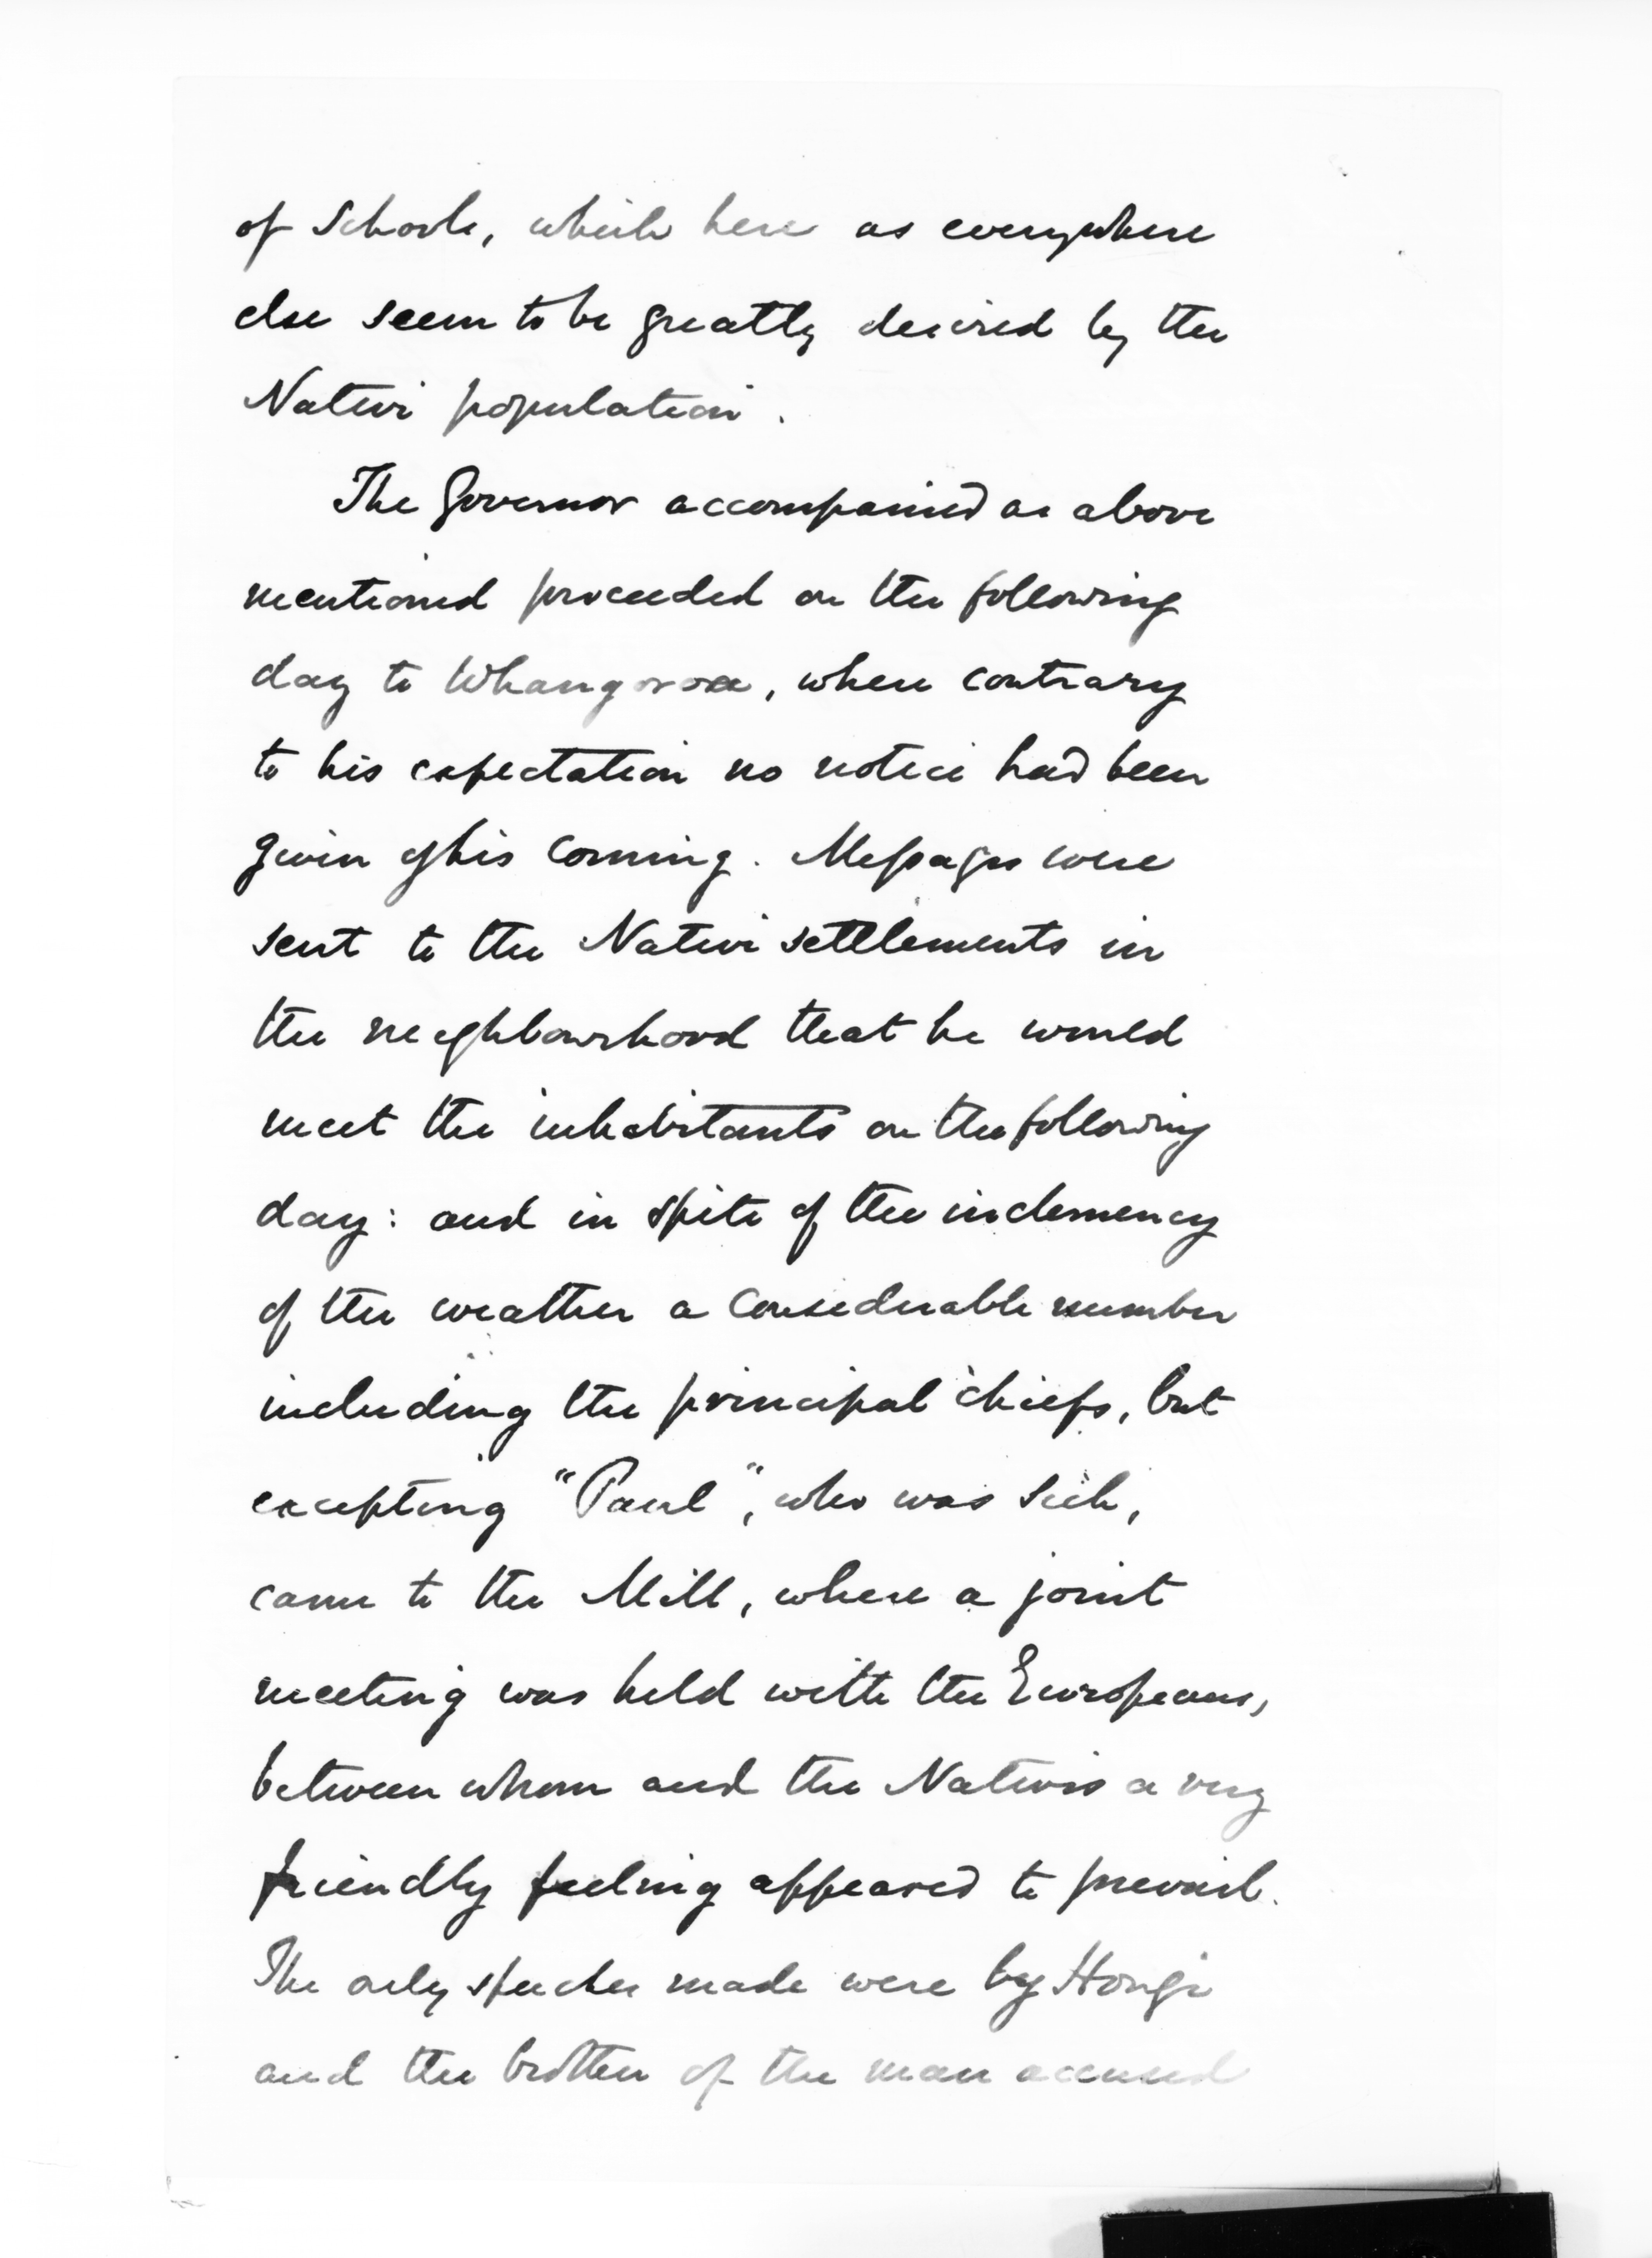 of Schools, which here as everywhere
else seem to be greatly desired by the
Native population.
The Governor accompanied as above
mentioned proceeded on the following
day to Whangaroa, where contrary
to his expectation no notice had been
given of his coming. Messages were
sent to the Native settlements in
the neighbourhood that he would
meet the inhabitants on the following
day: and in spite of the inclemency
of the weather a considerable number
including the principal chiefs, but
excepting "Paul", who was sick,
came to the Mill, where a joint
meeting was held with the Europeans,
between whom and the Natives a very
friendly feeling appeared to prevail.
The only speeches made were by Hongi
and the brother of the man accused